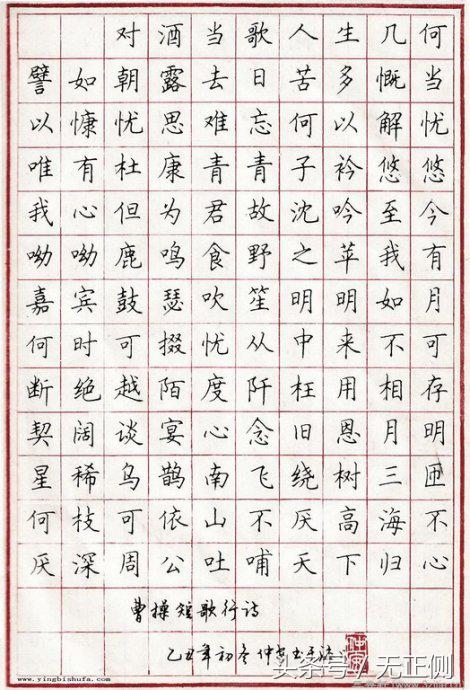 对酒当歌人生几何
譬如朝露去日苦多慨当
以慷忧思难忘何以解忧
唯有杜康青青子衿悠悠
我心但为君故沈吟至今
呦呦鹿鸣食野之苹我有
嘉宾鼓瑟吹笙明明如月
何时可掇忧从中来不可
断绝越陌度阡枉用相存
契阔谈宴心念旧恩月明
星稀乌鹊南飞绕树三匝
何枝可依山不厌高海不
厌深周公吐哺天下归心
曹操短歌行诗
乙丑年初冬仲
头条号／无正侧
www.yingbishufa.com